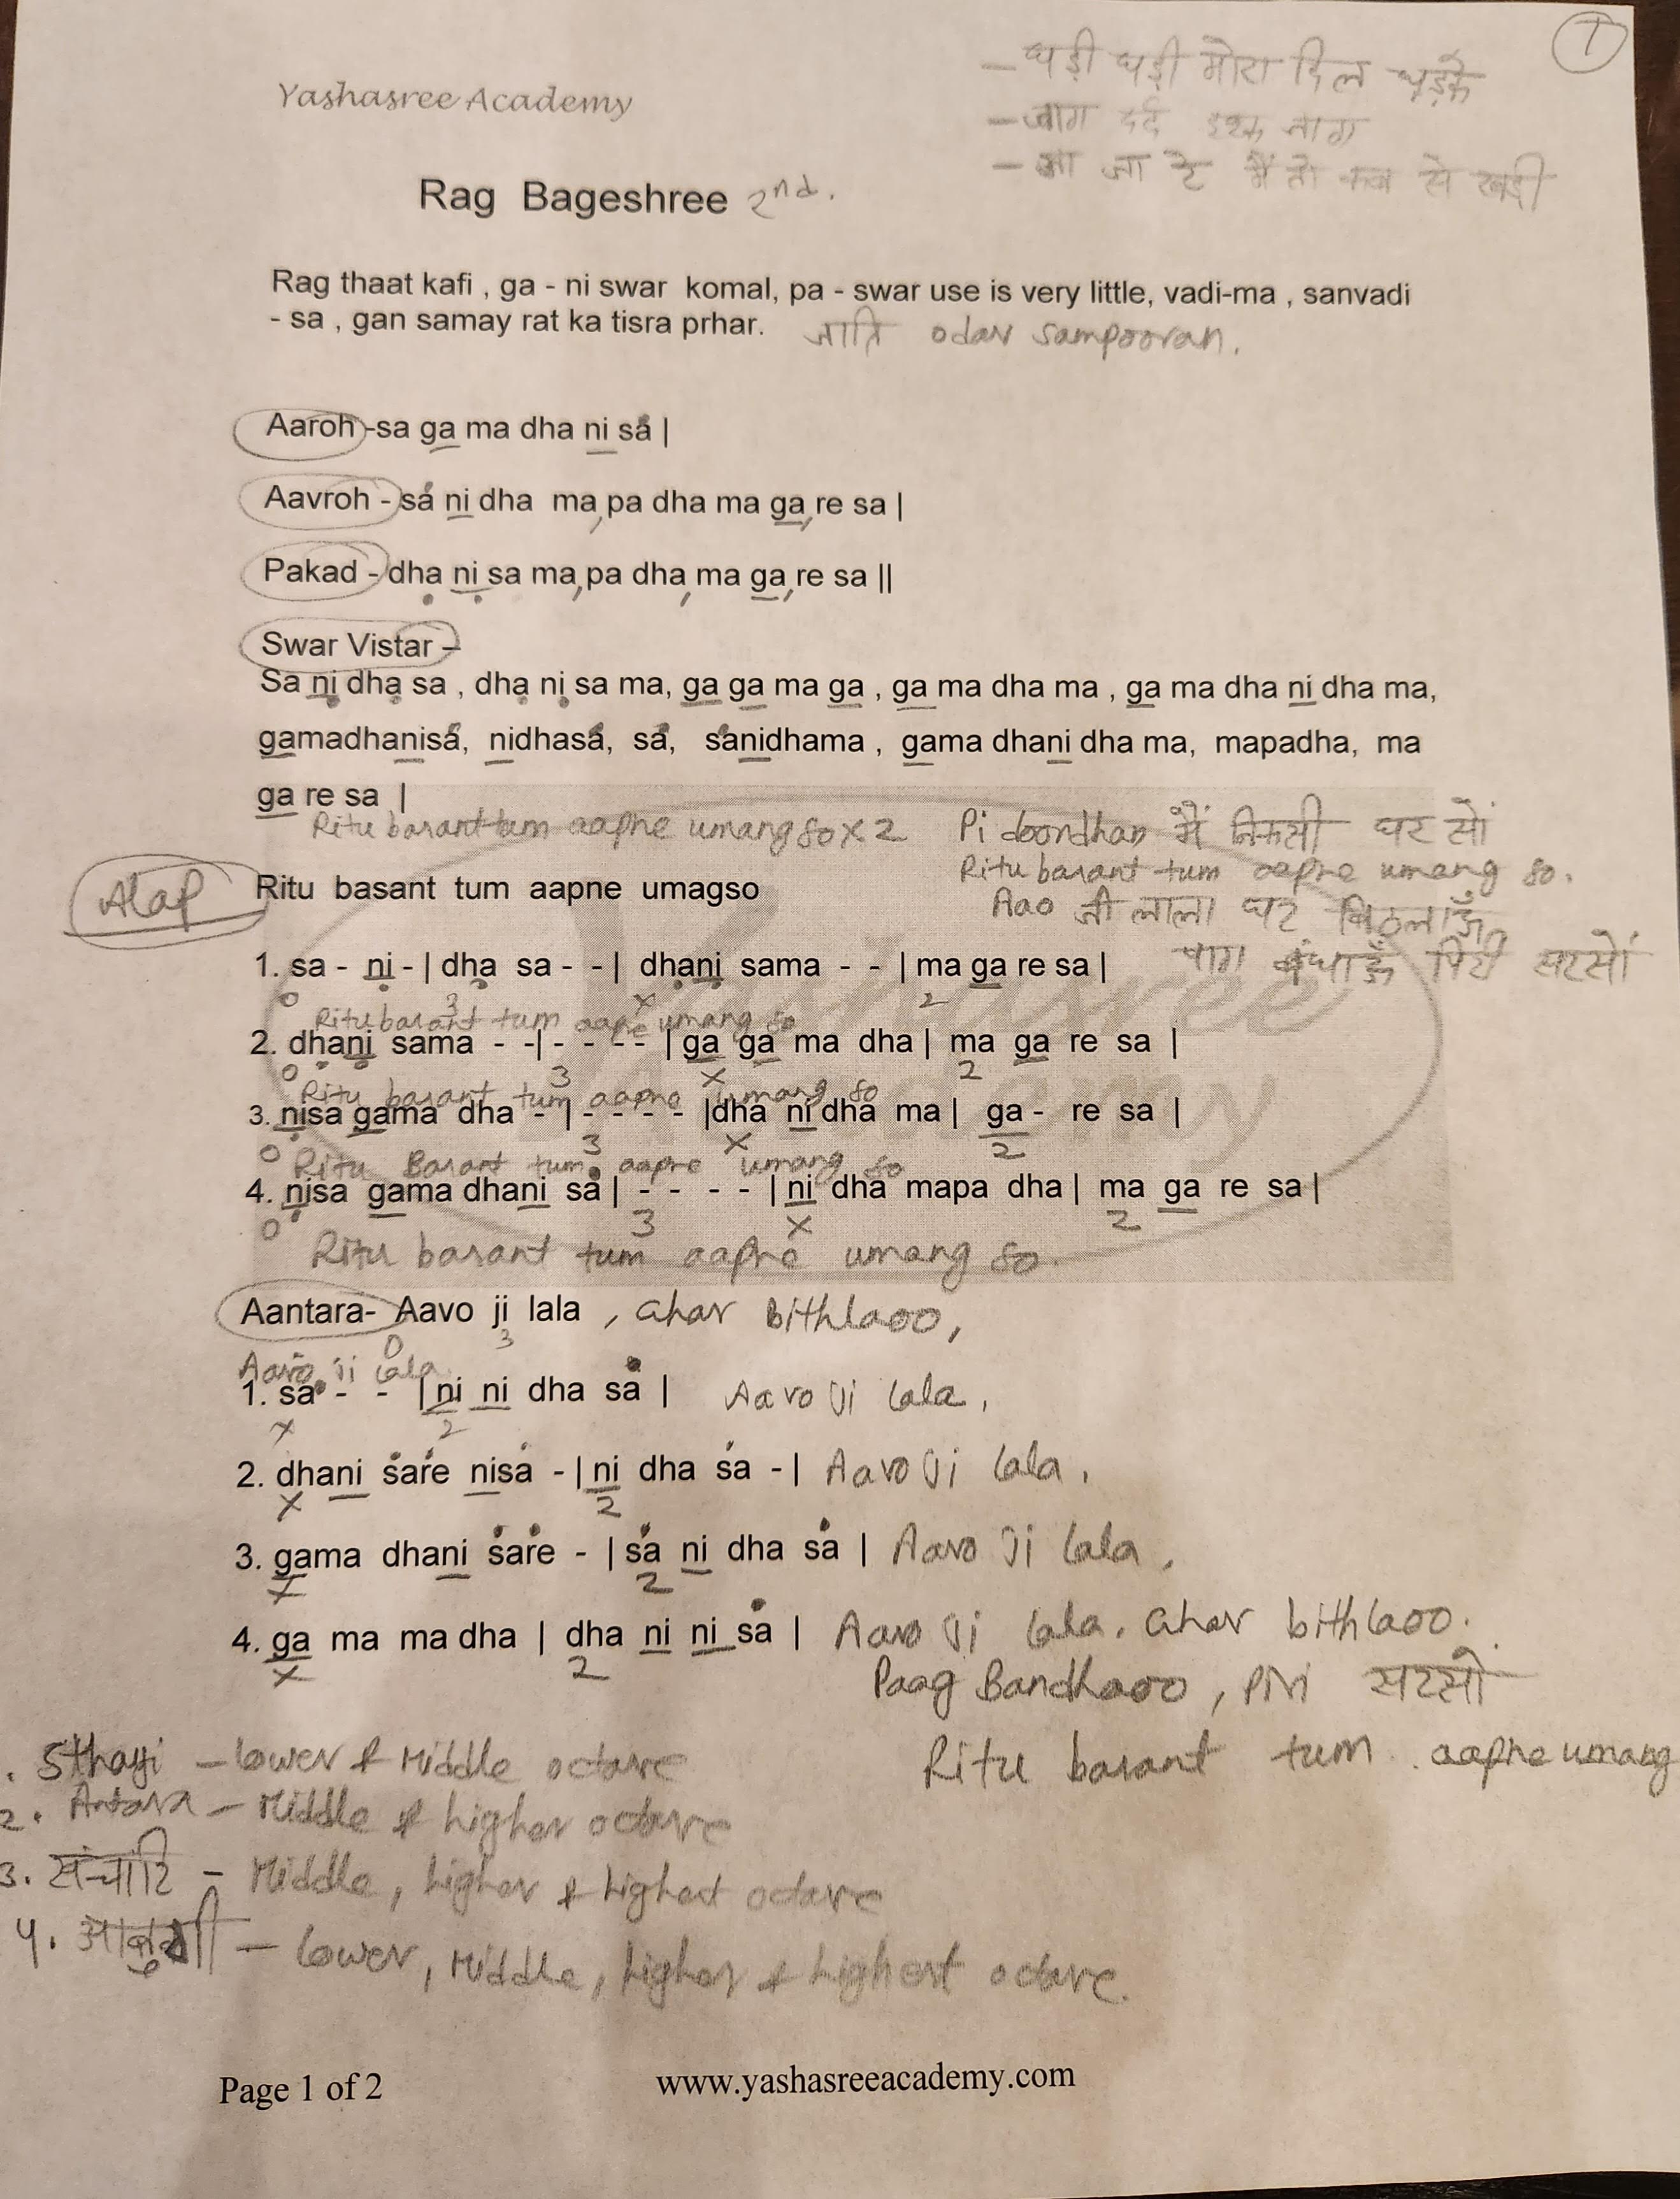 1
- घड़ी घड़ी मोरा दिल धड़के
- जाग दर्द इश्क जाग
- आ जा रे मैं तो कब से खड़ी
Yashasree Academy
Rag Bageshree 2nd.
Rag thaat kafi , ga - ni swar komal, pa - swar use is very little, vadi-ma , sanvadi
- sa , gan samay rat ka tisra prhar. जाति odav sampooran.
Aaroh -sa ga ma dha ni sa |
Aavroh - sa ni dha ma, pa dha ma ga, re sa |
Pakad - dha ni sa ma, pa dha, ma ga, re sa ||
Swar Vistar –
Sa ni dha sa , dha ni sa ma, ga ga ma ga , ga ma dha ma , ga ma dha ni dha ma,
gamadhanisa, nidhasa, sa, sanidhama , gama dhani dha ma, mapadha, ma
ga re sa |
Ritu basant tum aapne umang so x 2 Pi doondhan मैं निकसी घर सों
Ritu basant tum aapne umang so.
Alap Ritu basant tum aapne umagso
Aao जी लाला घर बिठलाऊँ
पाग बंधाऊँ पिरी सरसों
1. sa - ni - | dha sa - - | dhani sama - - | ma ga re sa |
0 3 x 2
Ritu basant tum aapne umang so
2. dhani sama - -| - - - - | ga ga ma dha | ma ga re sa |
0 3 x 2
Ritu basant tum aapne umang so
3. nisa gama dha - | - - - - |dha ni dha ma | ga - re sa |
0 3 x 2
Ritu Basant tum aapne umang so
4. nisa gama dhani sa | - - - - | ni dha mapa dha | ma ga re sa |
0 3 x 2
Ritu basant tum aapne umang so.
Aantara- Aavo ji lala , Ghar bithlaoo,
0 3
Aavo ji lala
1. sa - - | ni ni dha sa | Aavo ji lala ,
x 2
2. dhani sare nisa - | ni dha sa - | Aavo ji lala ,
x 2
3. gama dhani sare - | sa ni dha sa | Aavo ji lala ,
x 2
4. ga ma ma dha | dha ni ni sa | Aavo ji lala, Ghar bithlaoo.
x 2
Paag Bandhaoo , Piri सरसों
Ritu basant tum aapne umang
. Sthayi – lower & Middle octave
2. Antara – Middle & higher octave
3. संचारि – Middle, higher & highest octave
4. – lower, Middle, higher & highest octave.
Page 1 of 2 www.yashasreeacademy.com